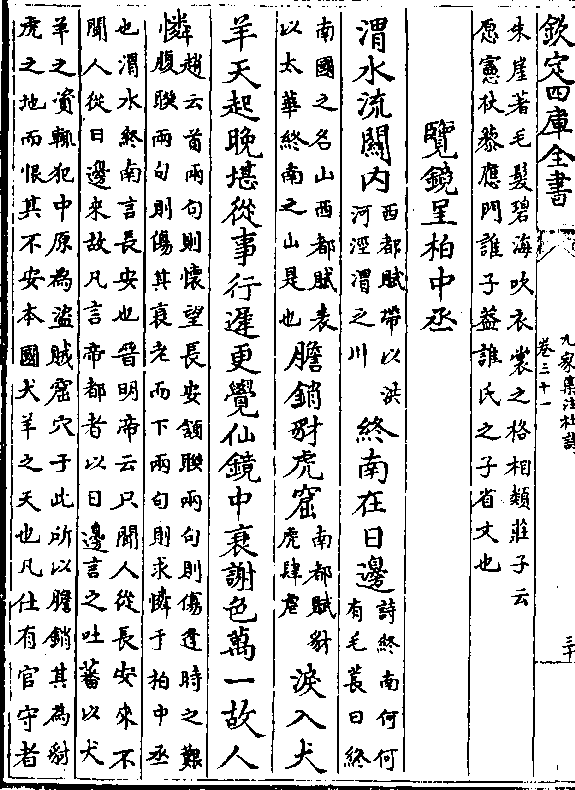 欽定四庫全書
九家集注杜詩
卷三十一
三十
朱崖著毛髮碧海吹衣裳之格相類莊子云
愿憲杖藜應門誰子葢誰氏之子省文也
覽鏡呈柏中丞
渭水流關内
西都賦帶以洪
河涇渭之川
終南在日邊
詩終南何何
有毛萇曰終
南國之名山西都賦表
以太華終南之山是也
膽銷豺虎窟
南都賦豺
虎肆虐
淚入犬
羊天起晚堪從事行遲更覺仙鏡中衰謝色萬一故人
憐
趙云首兩句則懷望長安頷聯兩句則傷逢時之艱
腹聨兩句則傷其衰老而下兩句則求憐于拍中丞
也渭水終南言長安也晉明帝云只聞人從長安來不
聞人從日邊來故凡言帝都者以日邊言之吐蕃以犬
羊之資輒犯中原為盗賊窟穴于此所以膽銷其為豺
虎之地而恨其不安本國犬羊之天也凡仕有官守者